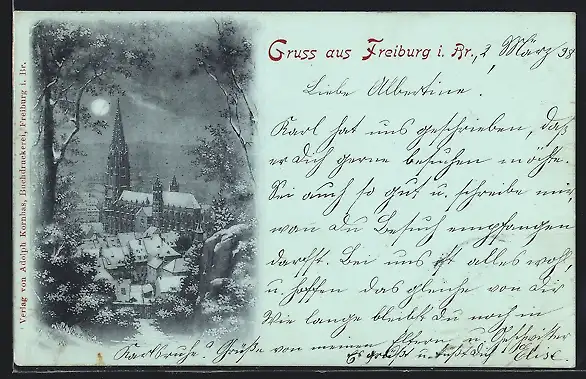 Gruss aus Freiburg i. Br., 2 März 98
Liebe Albertine!
Karl hat uns geschrieben, daß
er Dich gerne besuchen möchte.
Sei auch so gut u. schreibe mir,
wan Du Besuch empfangen
darfst. Bei uns ist alles wohl,
u. hoffen das gleiche von Dir
Wie lange bleibst Du noch in
Karlsruhe? Grüße von meinen Eltern u. Geschwister
Es grüßt u. küßt Dich Elise.
Verlag von Adolph Kornhas, Buchdruckerei, Freiburg i. Br.